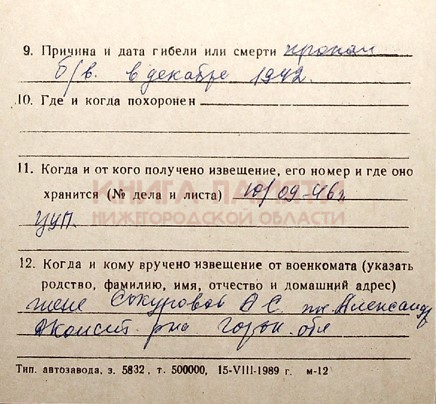 9. Причина и дата гибели или смерти пропал
б/в. в декабре 1942.
10. Где и когда похоронен
11. Когда и от кого получено извещение, его номер и где оно
хранится (№ дела и листа) 10/09-46г
КНИГА ПАМЯТИ
НИЖЕГОРОДСКОЙ ОБЛАСТИ
ЦУП.
12. Когда и кому вручено извещение от военкомата (указать
родство, фамилию, имя, отчество и домашний адрес)
жене Сокуровой А С.
р-на Горьк. обл
Тип. автозавода, з. 5832, т. 500000, 15-VIII-1989 г. м-12